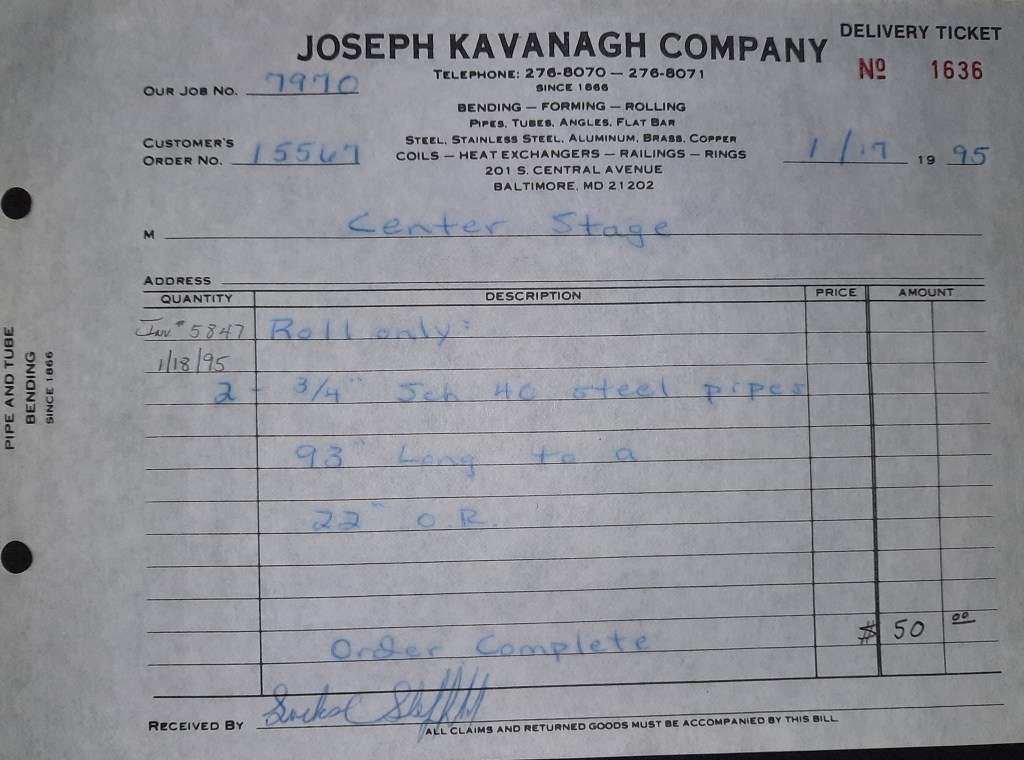 DELIVERY TICKET
JOSEPH KAVANAGH COMPANY
Nº 1636
TELEPHONE: 276-8070 — 276-8071
SINCE 1866
OUR JOB NO. 7970
BENDING — FORMING — ROLLING
PIPES, TUBES, ANGLES, FLAT BAR
STEEL, STAINLESS STEEL, ALUMINUM, BRASS, COPPER
CUSTOMER'S
ORDER NO. 15567
COILS — HEAT EXCHANGERS — RAILINGS — RINGS
1/17 19 95
201 S. CENTRAL AVENUE
BALTIMORE, MD 21202
M Center Stage
ADDRESS
QUANTITY DESCRIPTION PRICE AMOUNT
Inv # 5847 Roll only:
1/18/95
2 - 3/4" Sch 40 steel pipes
93" Long to a
22" O.R.
Order Complete $ 50 00
RECEIVED BY
ALL CLAIMS AND RETURNED GOODS MUST BE ACCOMPANIED BY THIS BILL
PIPE AND TUBE
BENDING
SINCE 1866